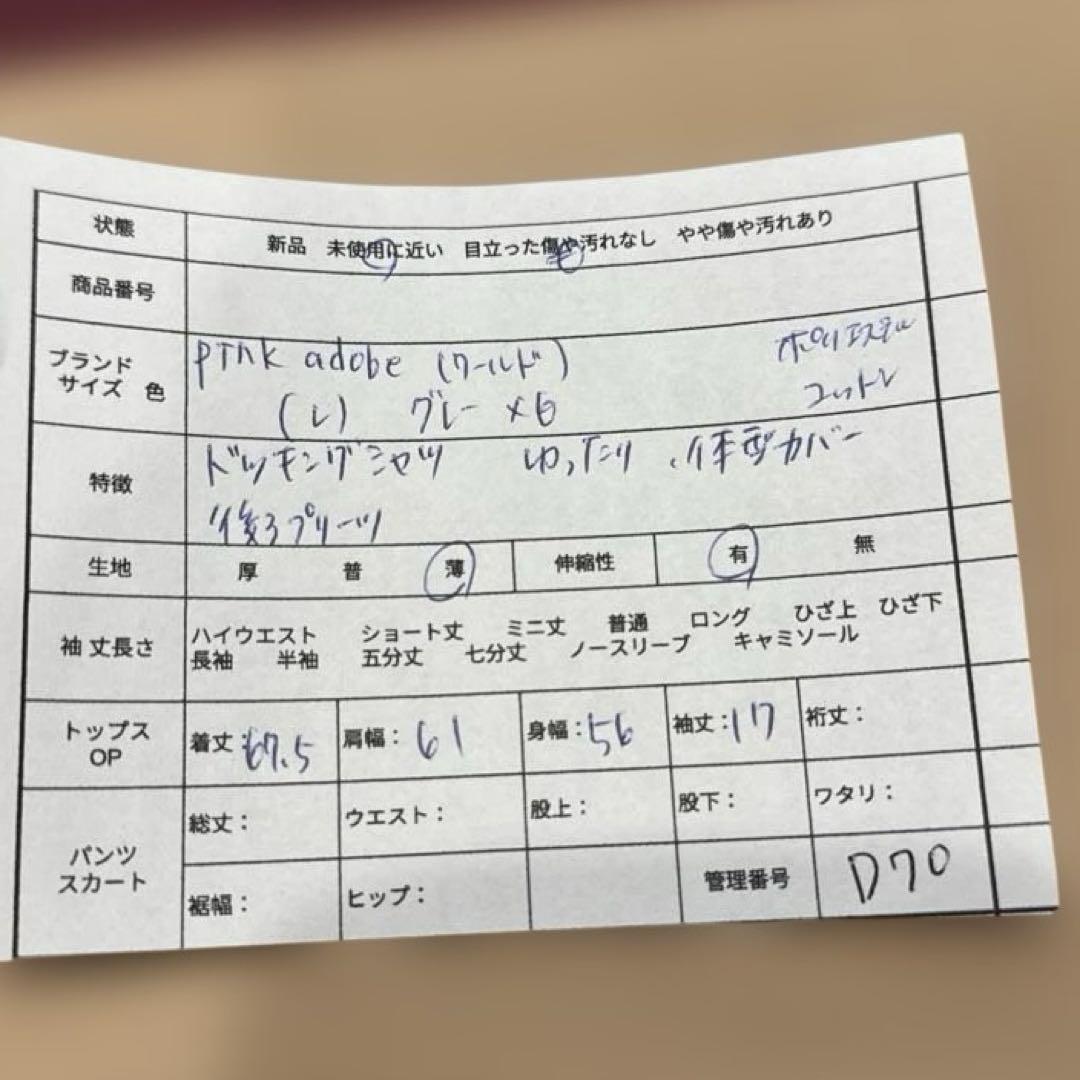 状態 新品 未使用に近い 目立った傷や汚れなし やや傷や汚れあり
商品番号
ブランド
サイズ 色
pink adobe (ワールド) ポリエステル
(L) グレー×白 コットン
特徴
ドッキングシャツ ゆったり、体型カバー
後ろプリーツ
生地 厚 普 薄 伸縮性 有 無
袖 丈長さ
ハイウエスト ショート丈 ミニ丈 普通 ロング ひざ上 ひざ下
長袖 半袖 五分丈 七分丈 ノースリーブ キャミソール
トップス
OP
着丈:67.5 肩幅:61 身幅:56 袖丈:17 裄丈:
パンツ
スカート
総丈: ウエスト: 股上: 股下: ワタリ:
裾幅: ヒップ: 管理番号 D70